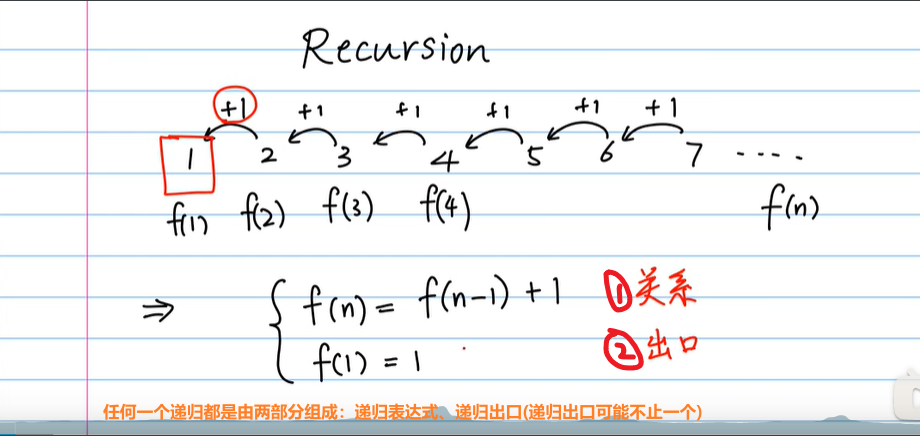 Recursion
+1 +1 +1 +1 +1 +1
1 2 3 4 5 6 7 ····
f(1) f(2) f(3) f(4) f(n)
⇒ { f(n) = f(n-1) + 1 ①关系
f(1) = 1 ②出口
任何一个递归都是由两部分组成：递归表达式、递归出口(递归出口可能不止一个)